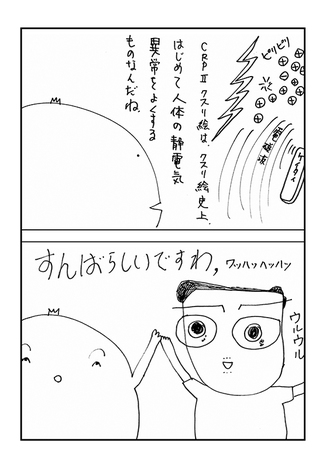 CRPⅡクスリ絵は、クスリ絵史上、
はじめて人体の静電気
異常をよくする
ものなんだね。
ビリビリ
ケイタイ
電磁波
すんばらしいですわ,
ワッハッハッハン
ウルウル